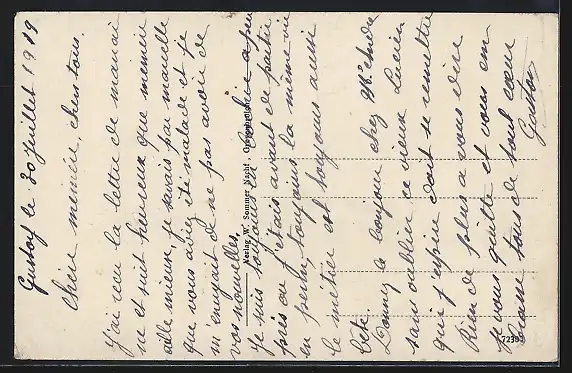 Gustorf le 30 Juillet 1919
Chère mémère, chers tous.
J'ai reçu la lettre de maman
ne et suit heureux que mémère
aille mieux, je savais par manelle
que vous aviez été malade et je
m'enuyait de ne pas avoir de
vos nouvelles.
Je suis toujours un à peu
près ou j'étais avant de partir
en perm, toujours la même vie
le métier est toujours aussi
bête.
Donnez le bonjour chez Mr
sans oublier ce vieux Lucien
qui j'espère doit se remettre
Rien de plus a vous dire
je vous quitte et vous em
brasse tous de tout coeur
Gaston
Verlag W. Sommer Nachf.
7239